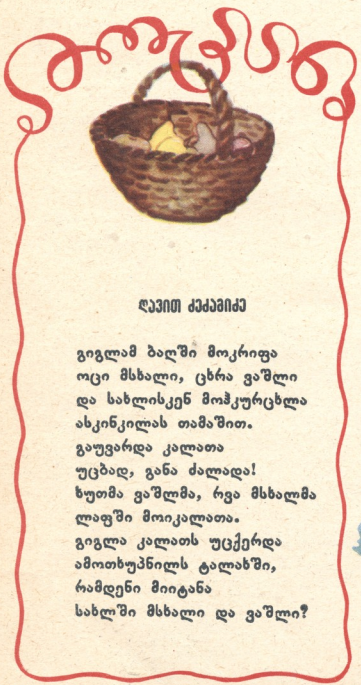 ამოცანა
დავით ძეძამიძე
გიგლამ ბაღში მოკრიფა
ოცი მსხალი, ცხრა ვაშლი
და სახლისკენ მოჰკურცხლა
ასკინკილას თამაშით.
გაუვარდა კალათა
უცბად, განა ძალადა!
ხუთმა ვაშლმა, რვა მსხალმა
ლაფში მოიკალათა.
გიგლა კალათს უცქერდა
ამოთხუპნილს ტალახში,
რამდენი მიიტანა
სახლში მსხალი და ვაშლი?